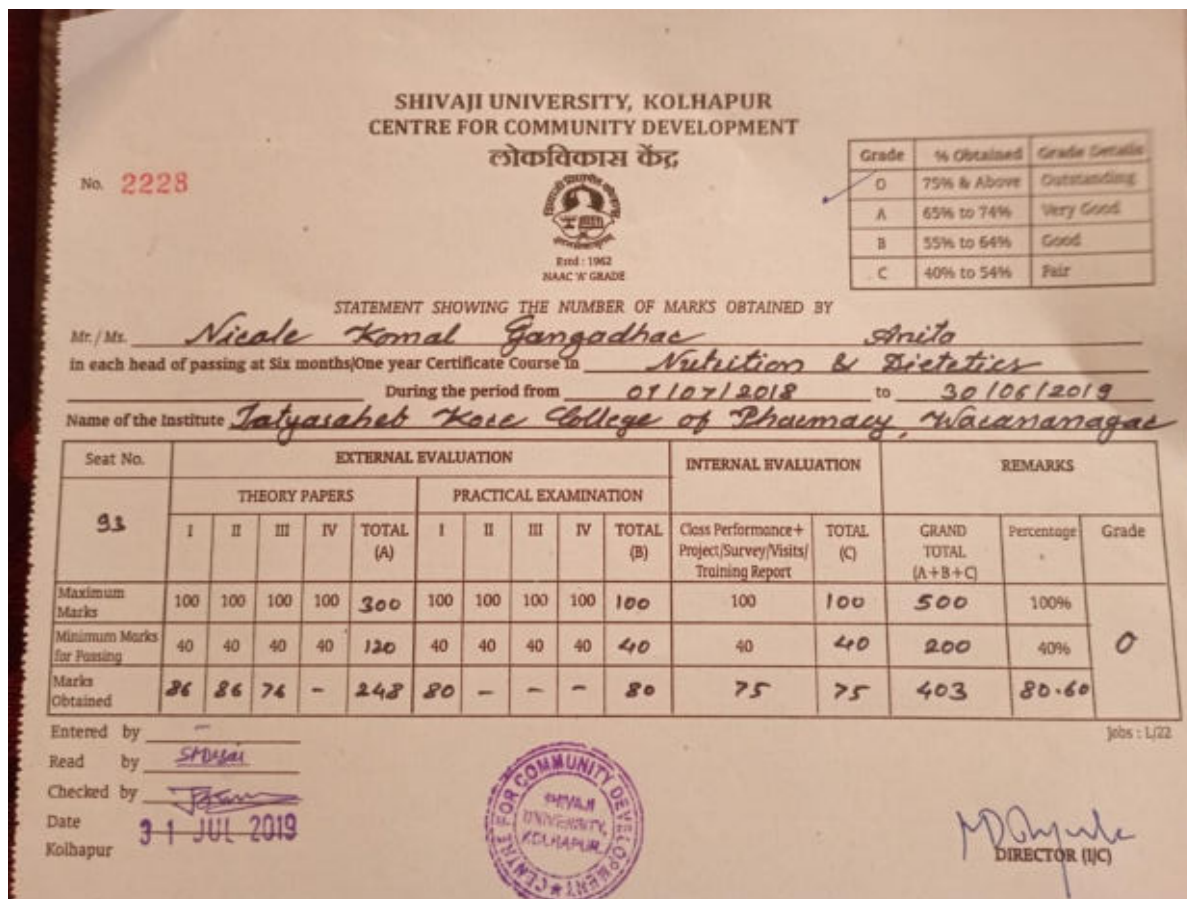 SHIVAJI UNIVERSITY, KOLHAPUR
CENTRE FOR COMMUNITY DEVELOPMENT
लोकविकास केंद्र
No. 2228
Estd : 1962
NAAC 'A' GRADE
Grade % Obtained Grade Details
O 75% & Above Outstanding
A 65% to 74% Very Good
B 55% to 64% Good
C 40% to 54% Fair
STATEMENT SHOWING THE NUMBER OF MARKS OBTAINED BY
Mr. / Ms. Nirale Komal Gangadhar Anita
in each head of passing at Six months/One year Certificate Course in Nutrition & Dietetics
During the period from 01/07/2018 to 30/06/2019
Name of the Institute Tatyasaheb Kore College of Pharmacy, Warananagar
Seat No. EXTERNAL EVALUATION INTERNAL EVALUATION REMARKS
THEORY PAPERS PRACTICAL EXAMINATION
93 I II III IV TOTAL (A) I II III IV TOTAL (B) Class Performance+ Project/Survey/Visits/ Training Report TOTAL (C) GRAND TOTAL (A+B+C) Percentage Grade
Maximum Marks 100 100 100 100 300 100 100 100 100 100 100 100 500 100%
Minimum Marks for Passing 40 40 40 40 120 40 40 40 40 40 40 40 200 40% O
Marks Obtained 86 86 76 - 248 80 - - - 80 75 75 403 80.60
Jobs : 1/22
Entered by -
Read by
Checked by
Date 31 JUL 2019
Kolhapur
CENTRE FOR COMMUNITY DEVELOPMENT
SHIVAJI
UNIVERSITY,
KOLHAPUR
DIRECTOR (I/C)